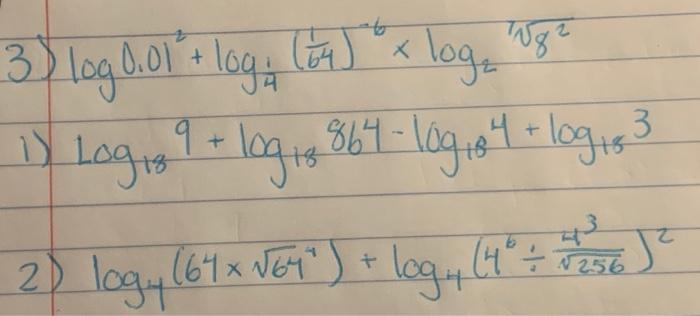 3) log 0.01² + log_{1/4} (1/64)⁻⁶ × log₂ ⁷√8²
1) Log₁₈ 9 + log₁₈ 864 - log₁₈ 4 + log₁₈ 3
2) log₄ (64 × √64⁴) + log₄ (4⁶ ÷ 4³/√256)²